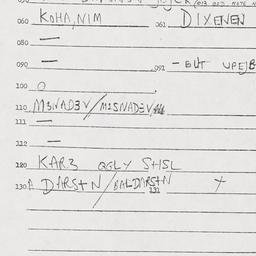 060 KOHA, NIM 061 DIYENEN
080 —
090 — 091 - BUT UPEJB
100 O
110 M3NAD3V/M2SNAD3V
111 —
112 —
120 KAR3 QELY S+ISL
130 A DARS+N/BALDARS+N 131 +